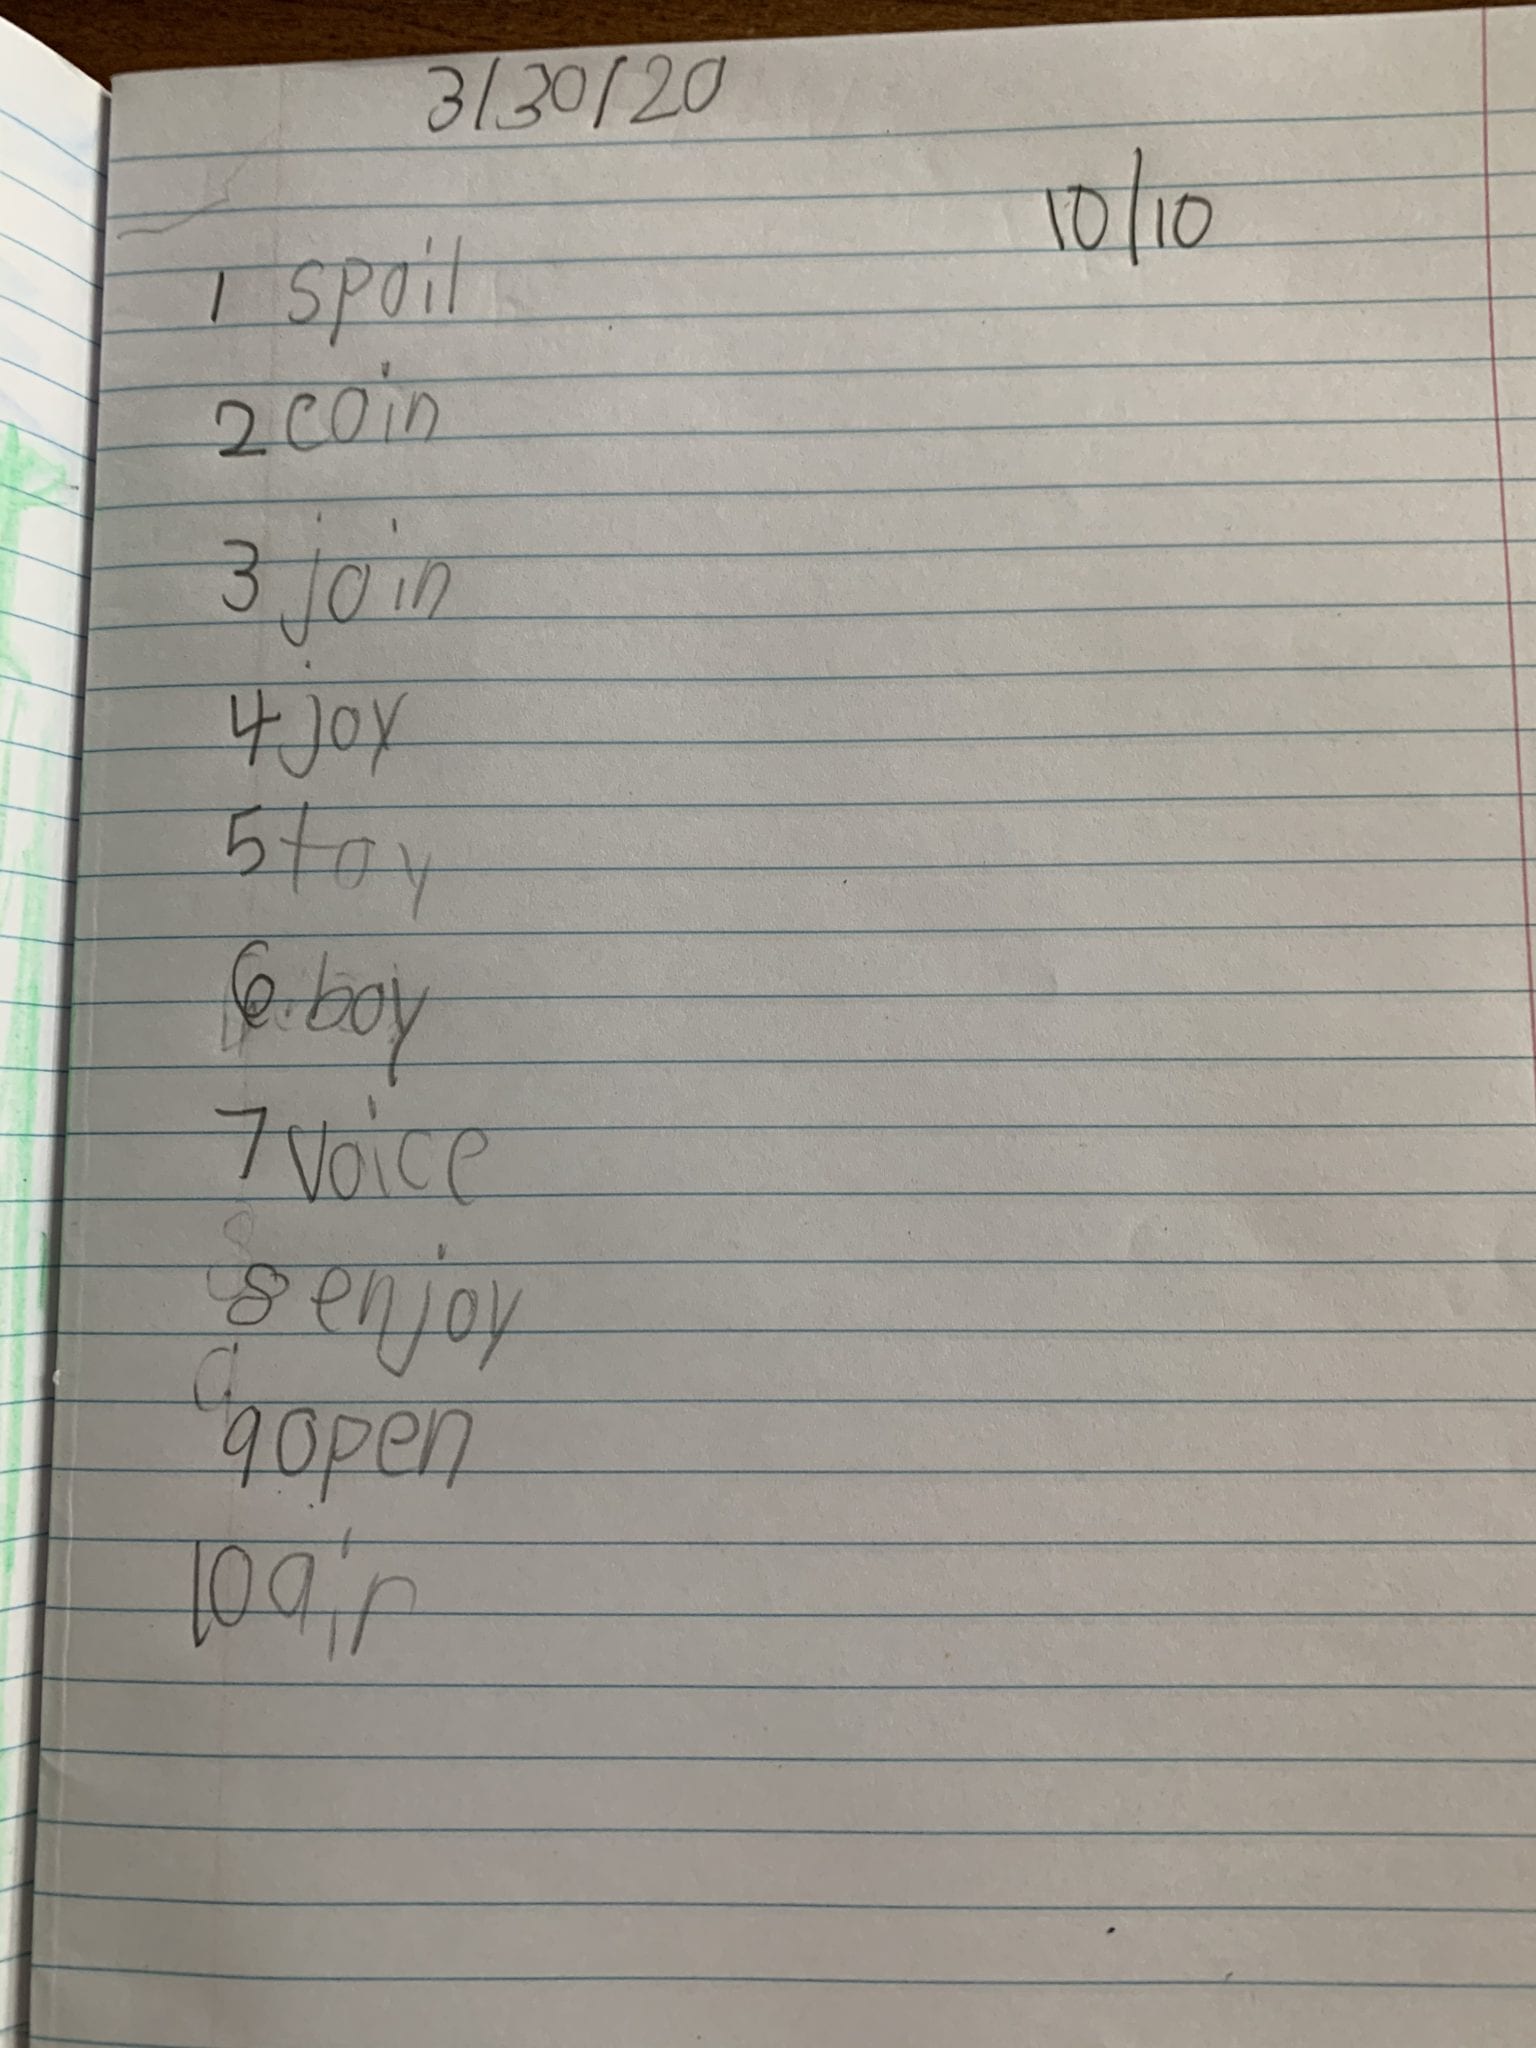 3/30/20
10/10
1 spoil
2 coin
3 join
4 joy
5 toy
6. boy
7 voice
8 enjoy
9 open
10 air